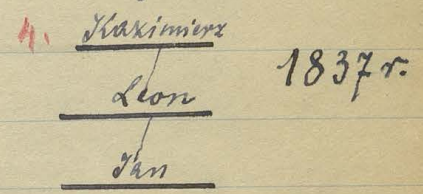 4. Kazimierz
1837 r.
Leon
Jan